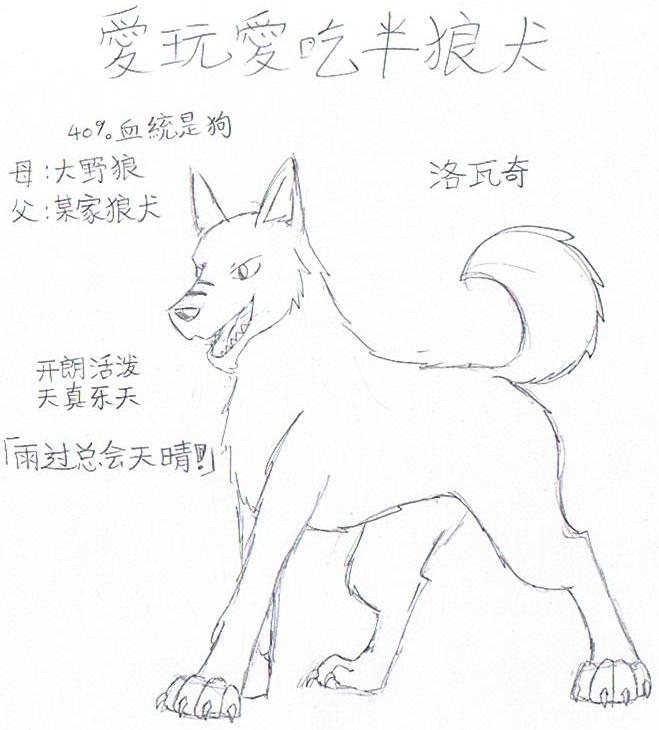 愛玩愛吃半狼犬
40%血統是狗
母:大野狼
父:某家狼犬
洛瓦奇
开朗活泼
天真乐天
「雨过总会天晴!!」